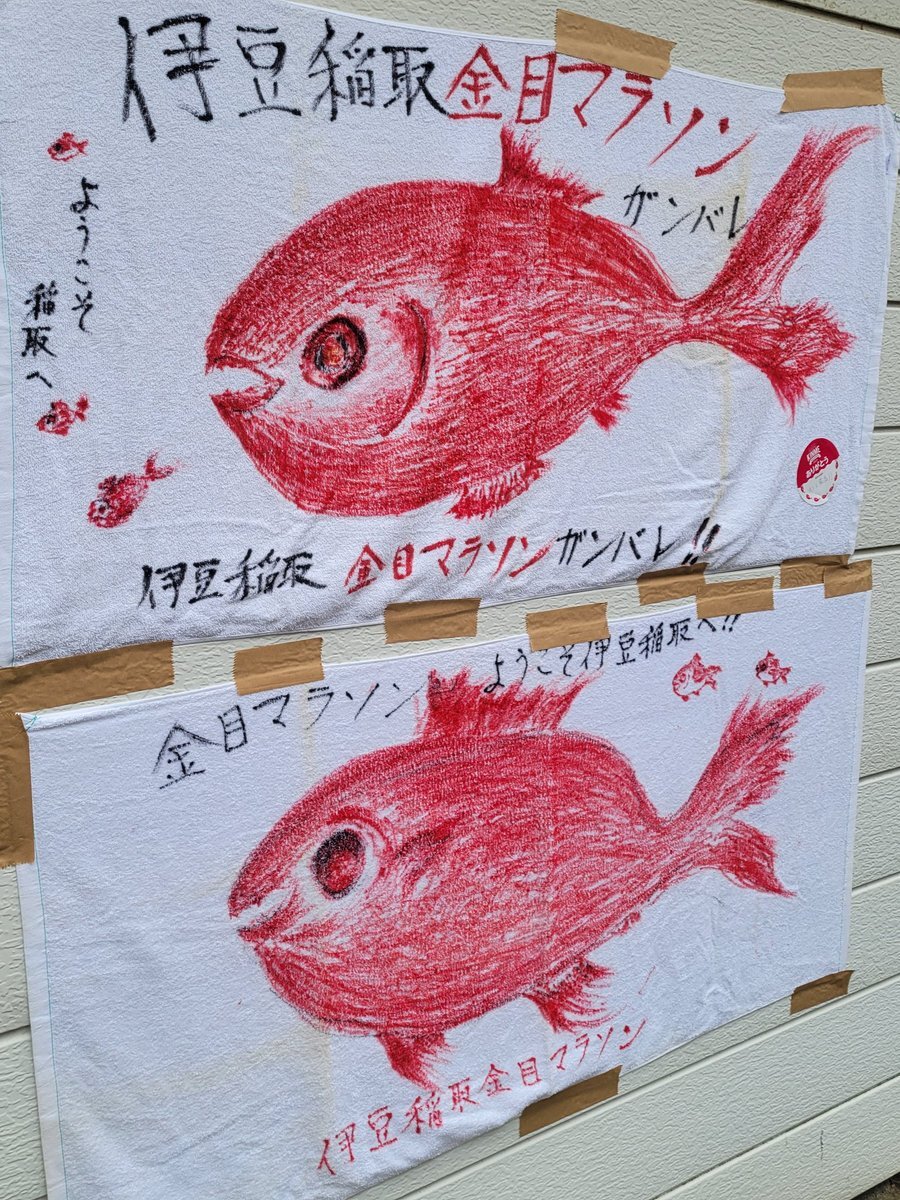 伊豆稲取金目マラソン
ガンバレ
ようこそ
稲取へ
ありがとう
伊豆稲取 金目マラソンガンバレ!!
金目マラソン ようこそ伊豆稲取へ!!
伊豆稲取金目マラソン